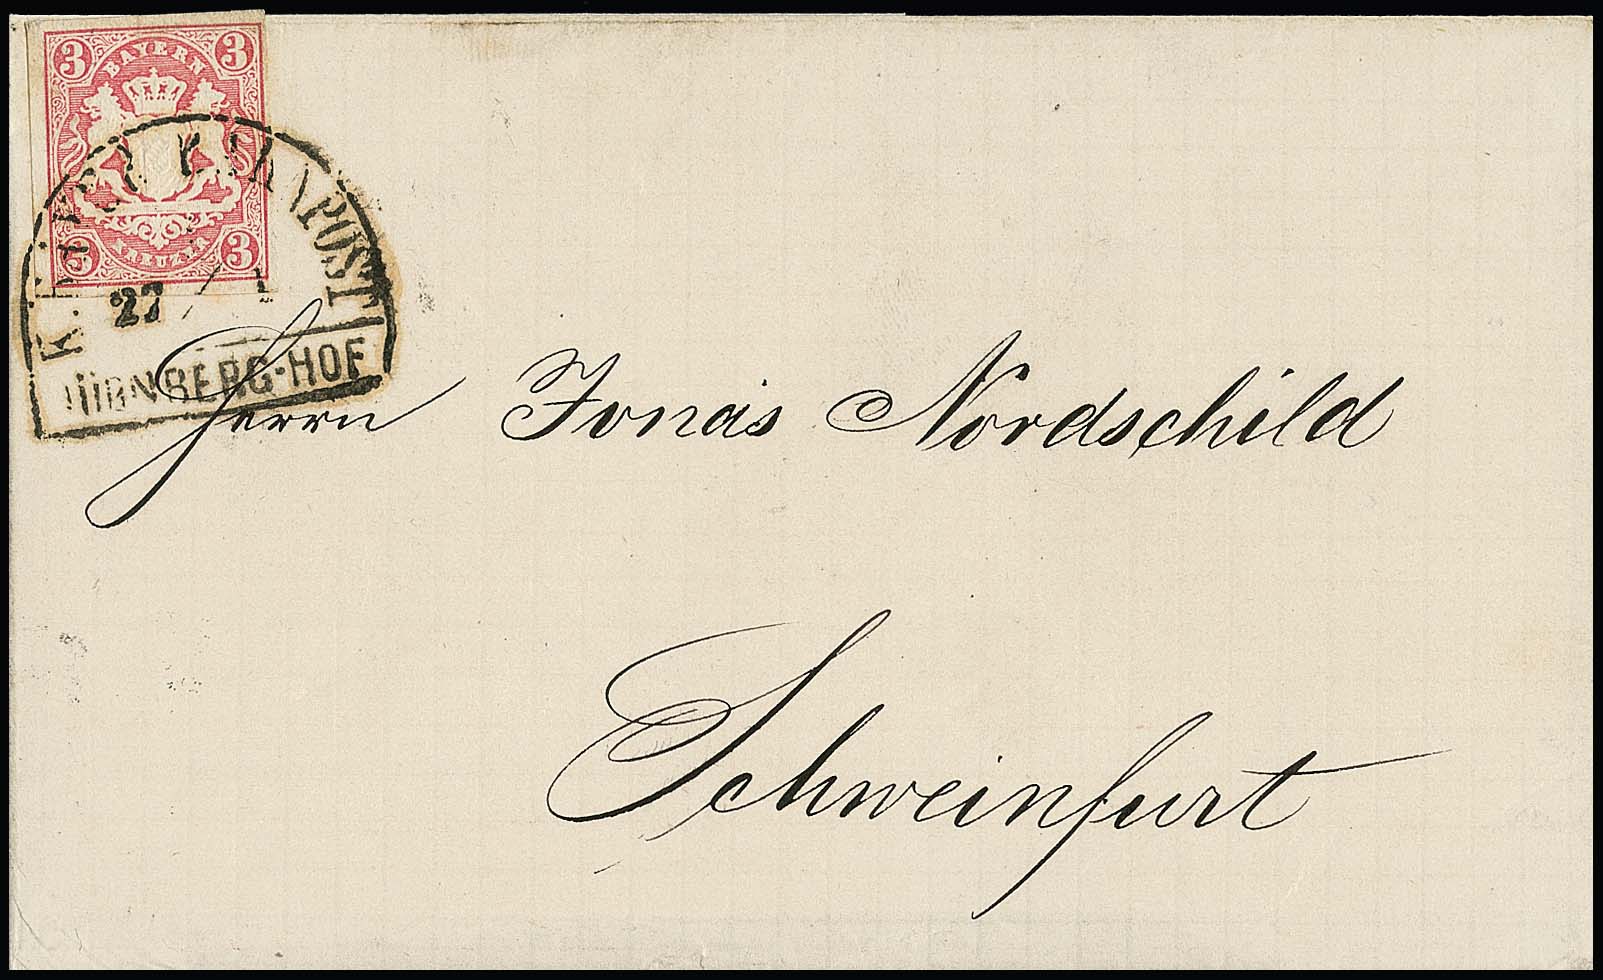 3 3
BAYERN
KREUZER
3 3
K. BAYER. BAHNPOST
27
NÜRNBERG-HOF
Herrn Jonas Nordschild
Schweinfurt